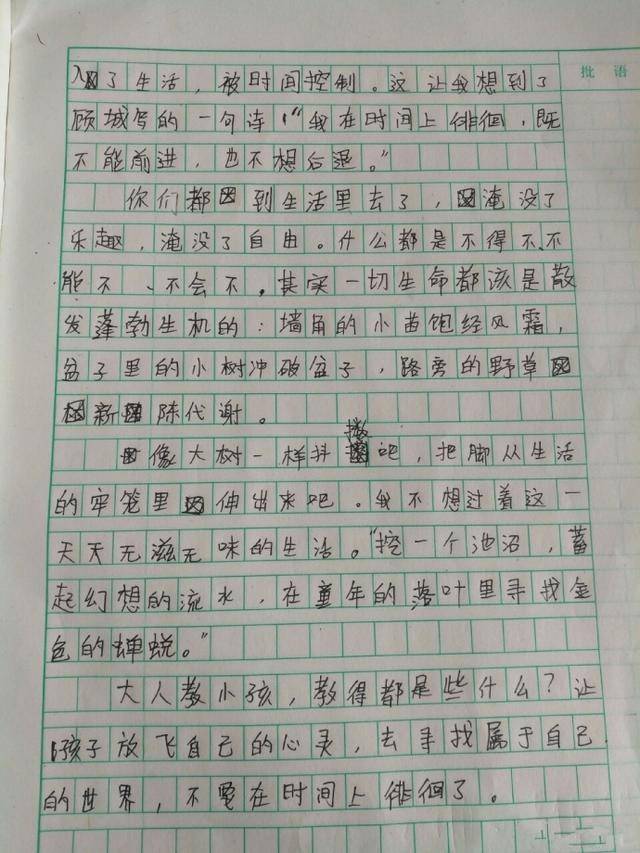 入了生活，被时间控制。这让我想到了
批语
顾城写的一句诗“我在时间上徘徊，既
不能前进，也不想后退。”
你们都到生活里去了，淹没了
乐趣，淹没了自由。什么都是不得不、不
能不、不会不。其实一切生命都该是散
发蓬勃生机的：墙角的小苗饱经风霜，
盆子里的小树冲破盆子，路旁的野草
新陈代谢。
像大树一样抖擞吧，把脚从生活
的牢笼里伸出来吧。我不想过着这一
天天无滋无味的生活。“挖一个池沼，蓄
起幻想的流水，在童年的落叶里寻找金
色的蝉蜕。”
大人教小孩，教得都是些什么？让
孩子放飞自己的心灵，去寻找属于自己
的世界，不要在时间上徘徊了。